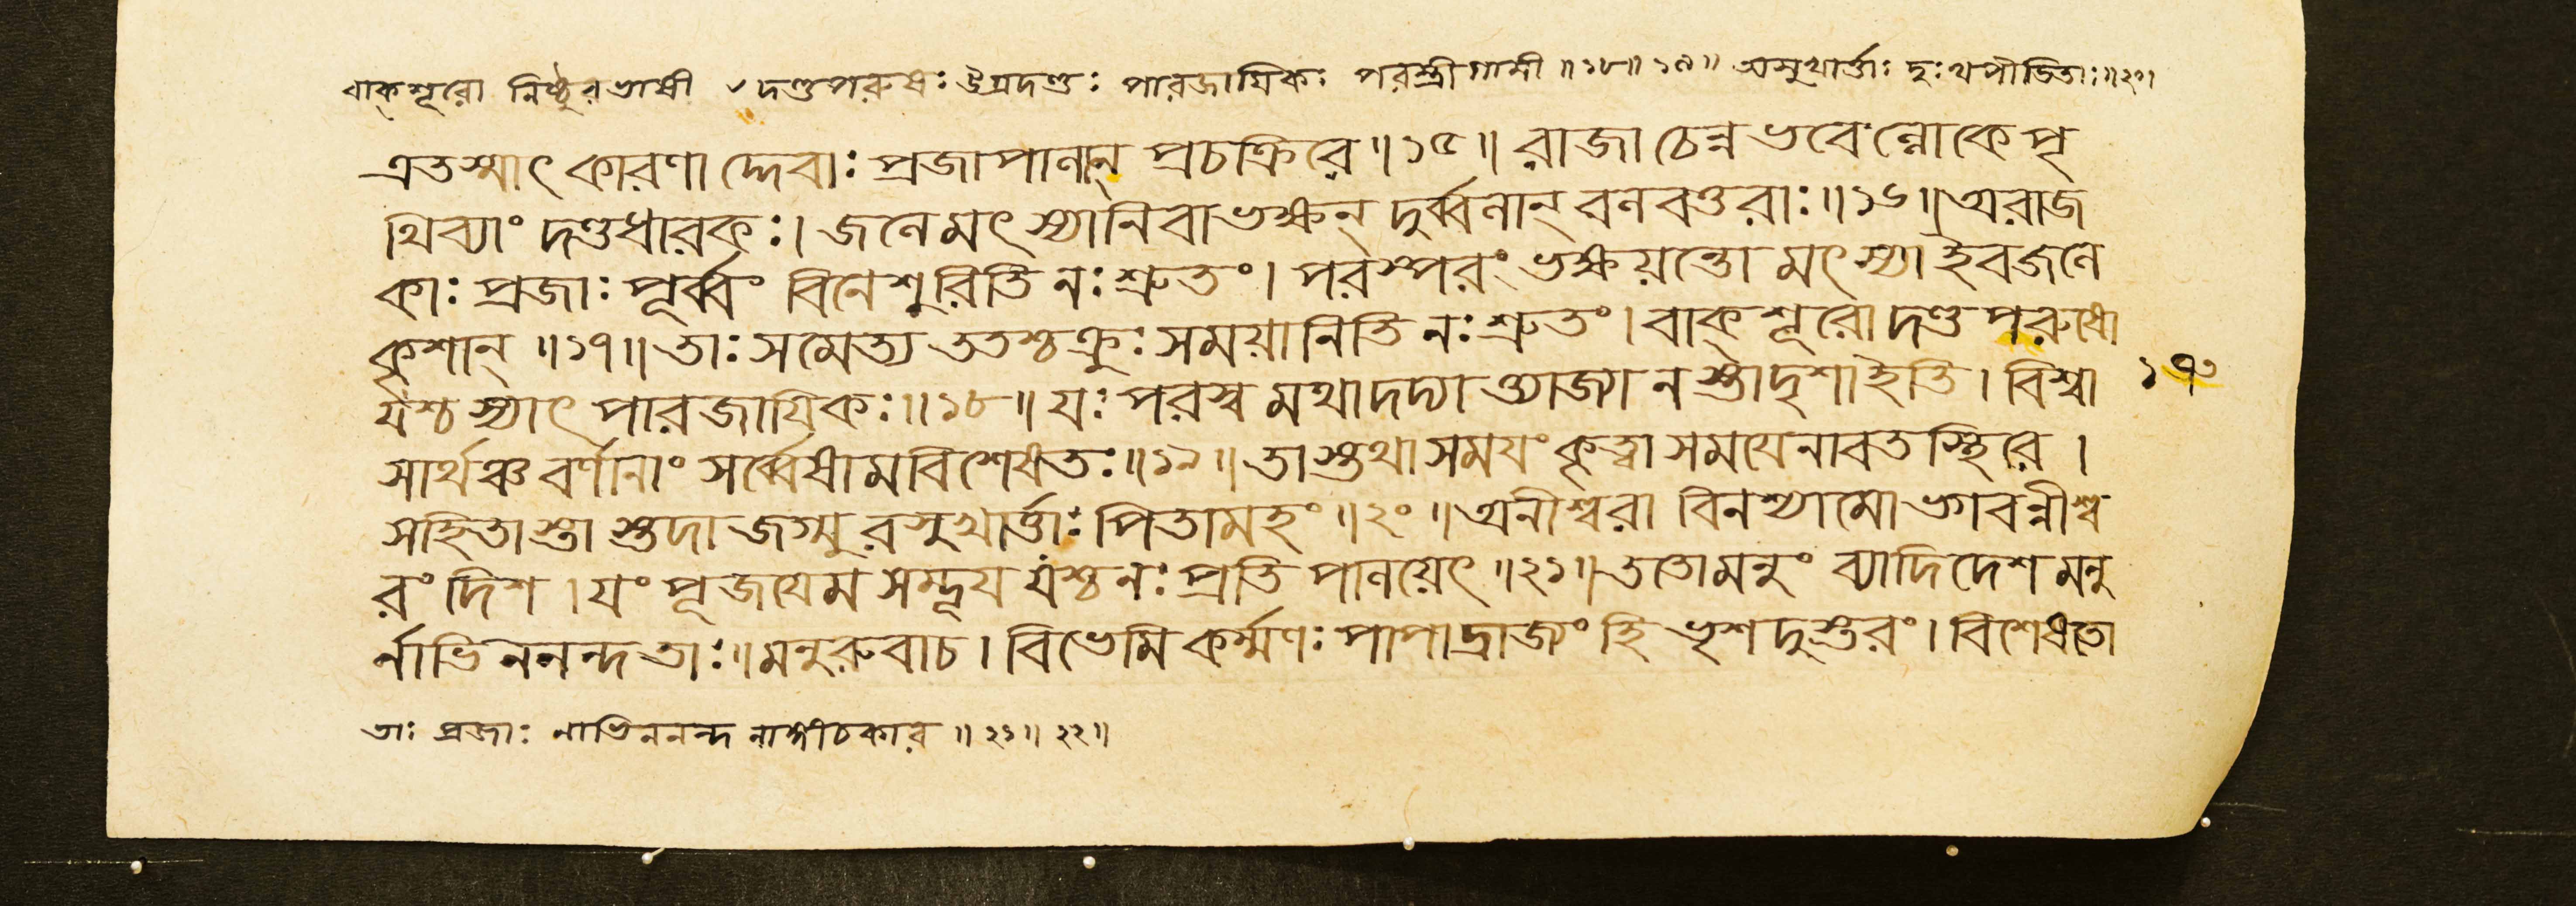 বাক্শূরো নিষ্ঠুরভাষী ৴দণ্ডপরুষঃ উগ্রদণ্ডঃ পারজায়িকঃ পরস্ত্রীগামী ॥১৮॥১৯॥ অসুখার্ত্তাঃ দুঃখপীডিতাঃ॥২০।
এতস্মাৎ কারণাদ্দেবাঃ প্রজাপালান্ প্রচক্রিরে॥১৫॥ রাজা চেন্ন ভবেল্লোকে পৃ
থিব্যাং দণ্ডধারকঃ। জলে মৎস্যানিবাভক্ষন্ দুর্ব্বলান্ বলবত্তরাঃ॥১৬॥অরাজ
কাঃ প্রজাঃ পূর্ব্বং বিনেশুরিতি নঃ শ্রুতং। পরস্পরং ভক্ষয়ন্তো মৎস্যা ইব জলে
কৃশান্ ॥১৭॥ তাঃ সমেত্য ততশ্চক্রুঃ সময়ানিতি নঃ শ্রুতং। বাক্শূরো দণ্ডপরুষো
যশ্চ স্যাৎ পারজায়িকঃ॥১৮॥ যঃ পরস্বমথাদদ্যাত্ত্যাজ্যা নস্তাদৃশা ইতি। বিশ্বা
সার্থঞ্চ বর্ণানাং সর্ব্বেষামবিশেষতঃ॥১৯॥ তাস্তথা সময়ং কৃত্বা সময়েনাবতস্থিরে।
সহিতাস্তাস্তদা জগ্মুরসুখার্ত্তাঃ পিতামহং ॥২০॥অনীশ্বরা বিনশ্যামো ভগবন্নীশ্ব
রং দিশ। যং পূজয়েম সম্ভূয় যশ্চ নঃ প্রতিপালয়েৎ ॥২১॥ততো মনুং ব্যাদিদেশ মনু
র্নাভিননন্দ তাঃ॥ মনুরুবাচ। বিভেমি কর্ম্মণঃ পাপাদ্রাজ্যং হি ভৃশদুস্তরং। বিশেষতো
১৭
তাঃ প্রজাঃ নাভিননন্দ নাঙ্গীচকার ॥২১॥২২॥